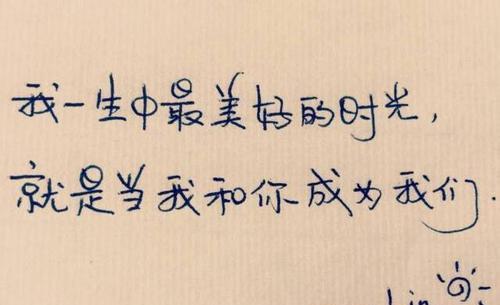 我一生中最美好的时光，
就是当我和你成为我们.